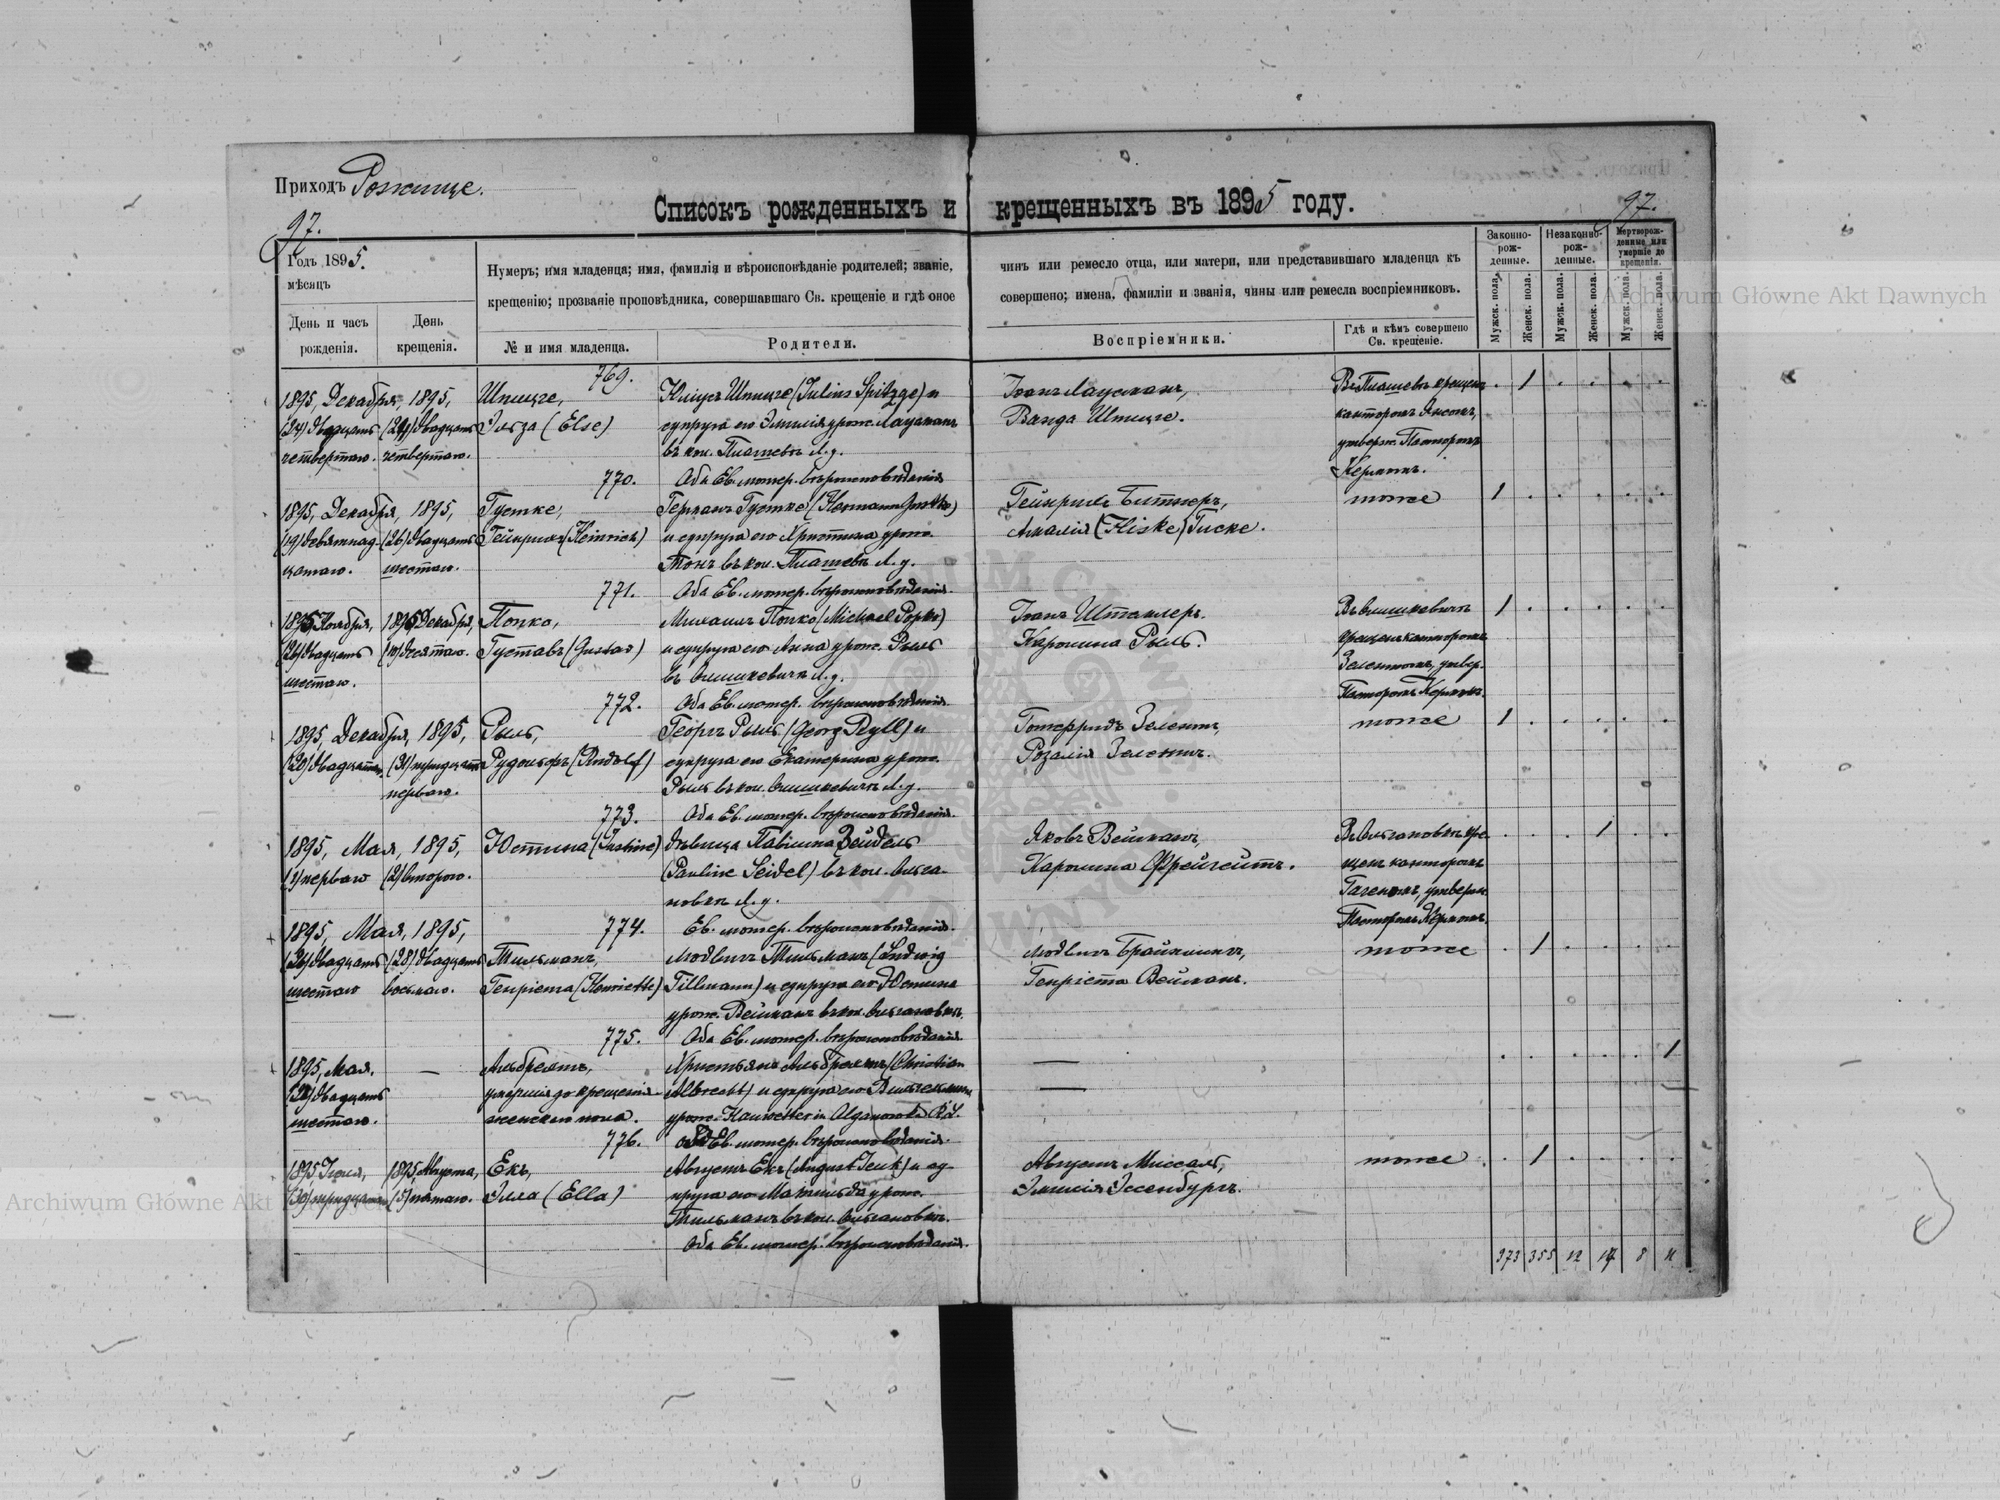 Приходъ Рожище.
97.
97.
Списокъ рожденныхъ и крещенныхъ въ 1895 году.
Годъ 1895.
мѣсяцъ
День и часъ рожденія.
День крещенія.
Нумеръ; имя младенца; имя, фамилія и вѣроисповѣданіе родителей; званіе, чинъ или ремесло отца, или матери, или представившаго младенца къ
крещенію; прозваніе проповѣдника, совершавшаго Св. крещеніе и гдѣ оное совершено; имена, фамиліи и званія, чины или ремесла воспріемниковъ.
№ и имя младенца.
Родители.
Воспріемники.
Гдѣ и кѣмъ совершено Св. крещеніе.
Законно-рож-денные.
Незаконно-рож-денные.
Мертворож-денные или умершіе до крещенія.
Мужск. пола.
Женск. пола.
Мужск. пола.
Женск. пола.
Мужск. пола.
Женск. пола.
769.
1895, Декабря, 1895,
(24) двадцать (24) двадцать
четвертаго. четвертаго.
Шпицге,
Элза (Else)
Юліусъ Шпицге (Julius Spitzge) и
супруга его Эмилія урож. Лауманъ
въ кол. Пташевъ Л.у.
Оба Ев. лютер. вѣроисповѣданія
Іоанъ Лауманъ,
Ванда Шпицге.
канторомъ Янсонъ,
утверж. Пасторомъ
Керномъ.
1
770.
1895, Декабря, 1895,
(19) девятнад- (26) двадцать
цатаго. шестаго.
Густке,
Гейнрихъ (Heinrich)
Германъ Густке (Hermann Gustke)
и супруга его Христина урож.
въ кол. Пташевъ Л.у.
Оба Ев. лютер. вѣроисповѣданія.
Гейнрихъ Битнеръ,
Амалія (Hiske) Гиске.
тоже
1
771.
1895 Ноября, 1895 Декабря,
(26) двадцать (10) десятаго.
шестаго.
Попко,
Густавъ (Gustav)
Михаилъ Попко (Michael Popko)
и супруга его Анна урож. Рыль
Оба Ев. лютер. вѣроисповѣданія.
Іоанъ Штемлеръ.
Каролина Рыль.
Пасторомъ Керномъ.
1
772.
1895, Декабря, 1895,
(20) двадцатаго, (31) тридцать
перваго.
Рыль,
Рудольфъ (Rudolf)
Георгъ Рыль (Georg Ryll) и
супруга его Екатерина урож.
Оба Ев. лютер. вѣроисповѣданія.
Готфридъ Зелентъ,
Розалія Зелентъ.
тоже
1
773.
1895, Мая, 1895,
(1) перваго (2) второго.
Юстина (Justine)
Дѣвица Павлина Зейдель
(Pauline Seidel) въ кол. Вильга-
новкѣ Л.у.
Ев. лютер. вѣроисповѣданія.
Яковъ Вейманъ,
Каролина Фрейгейтъ.
щенъ канторомъ
Пасторомъ Керномъ.
1
774.
1895, Мая, 1895,
(26) двадцать (28) двадцать
шестаго восьмаго.
Тильманъ,
Генріета (Henriette)
Людвигъ Тильманъ (Ludwig
Tillmann) и супруга его Юстина
урож. Вейманъ въ кол. Вильгановкѣ.
Оба Ев. лютер. вѣроисповѣданія
Людвигъ Брайкмихъ,
Генріета Вейманъ.
тоже
1
775.
1895, Мая. —
(26) двадцать
шестаго.
Альбрехтъ,
умершая до крещенія
женскаго пола.
Христьянъ Альбрехтъ (Christian
Albrecht) и супруга его Вильгельмина
Оба Ев. лютер. вѣроисповѣданія.
1
776.
1895 Іюля, 1895, Августа,
(30) тридцатаго (5) пятаго.
Екъ,
Элла (Ella)
Августъ Екъ (August Jeuk) и су-
пруга его Матильда урож.
Тильманъ въ кол. Вильгановкѣ.
Оба Ев. лютер. вѣроисповѣданія.
Августъ Миссаль,
Эмилія Эссенбургъ.
тоже
1
373 355 12 17 8 11
Archiwum Główne Akt Dawnych
Archiwum Główne Akt Dawnych